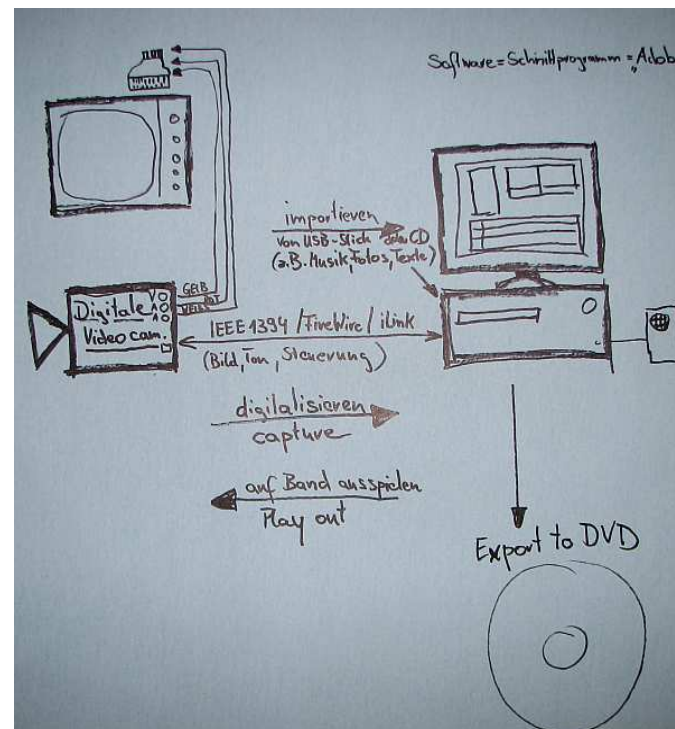 Software = Schnittprogramm = Adob
importieren
von USB-Stick oder CD
(z.B. Musik, Fotos, Texte)
GELB
ROT
WEISS
V
A
A
Digitale
Videocam.
IEEE1394 / FireWire / iLink
(Bild, Ton, Steuerung)
digitalisieren
capture
auf Band ausspielen
Play out
Export to DVD